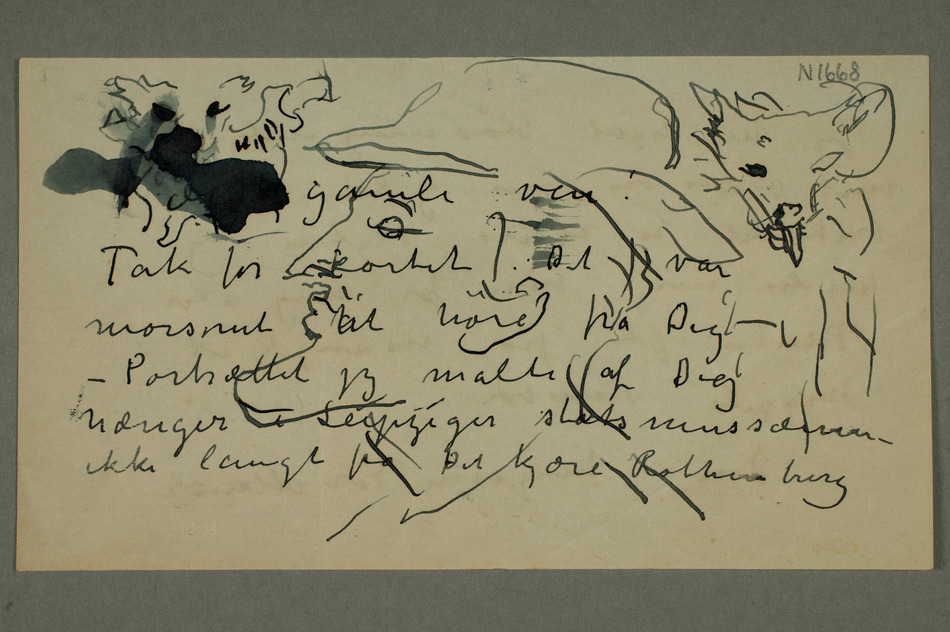 N1668
gamle ven!
Tak for kortet. Det var
morsomt at höre fra Dig –
– Portrættet jeg malte af Dig
hænger i Leipziger statsmussæum –
ikke langt fra Det kjære Rothenburg